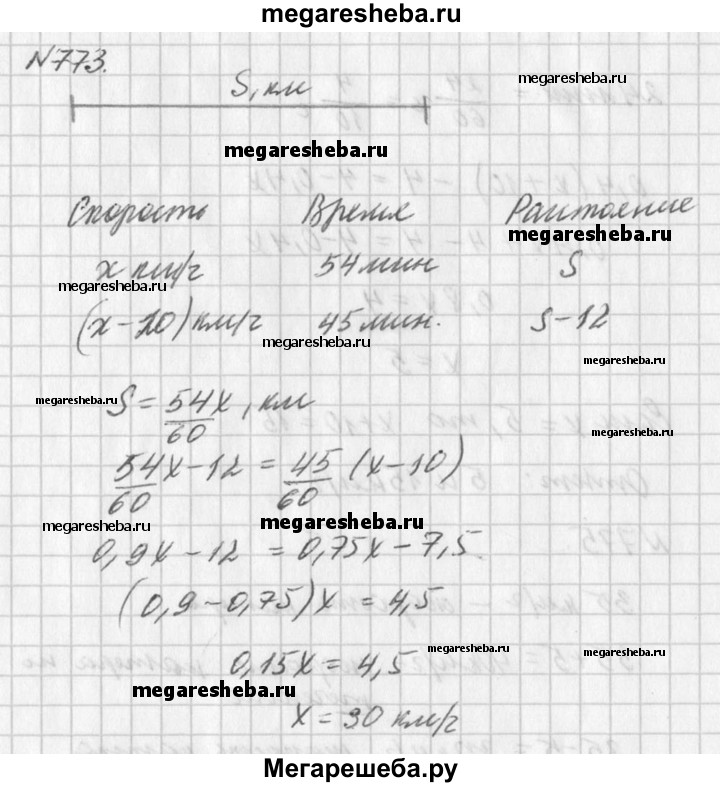 megaresheba.ru
N773.
S, км
megaresheba.ru
megaresheba.ru
Скорость Время Расстояние
megaresheba.ru
x км/г 54 мин S
megaresheba.ru
(x-10) км/г 45 мин. S-12
megaresheba.ru
megaresheba.ru
megaresheba.ru
S = 54x/60, км
megaresheba.ru
54/60 x - 12 = 45/60 (x-10)
megaresheba.ru
megaresheba.ru
0,9x - 12 = 0,75x - 7,5.
(0,9 - 0,75)x = 4,5
megaresheba.ru
megaresheba.ru
0,15x = 4,5
megaresheba.ru
x = 30 км/г
Мегарешеба.ру